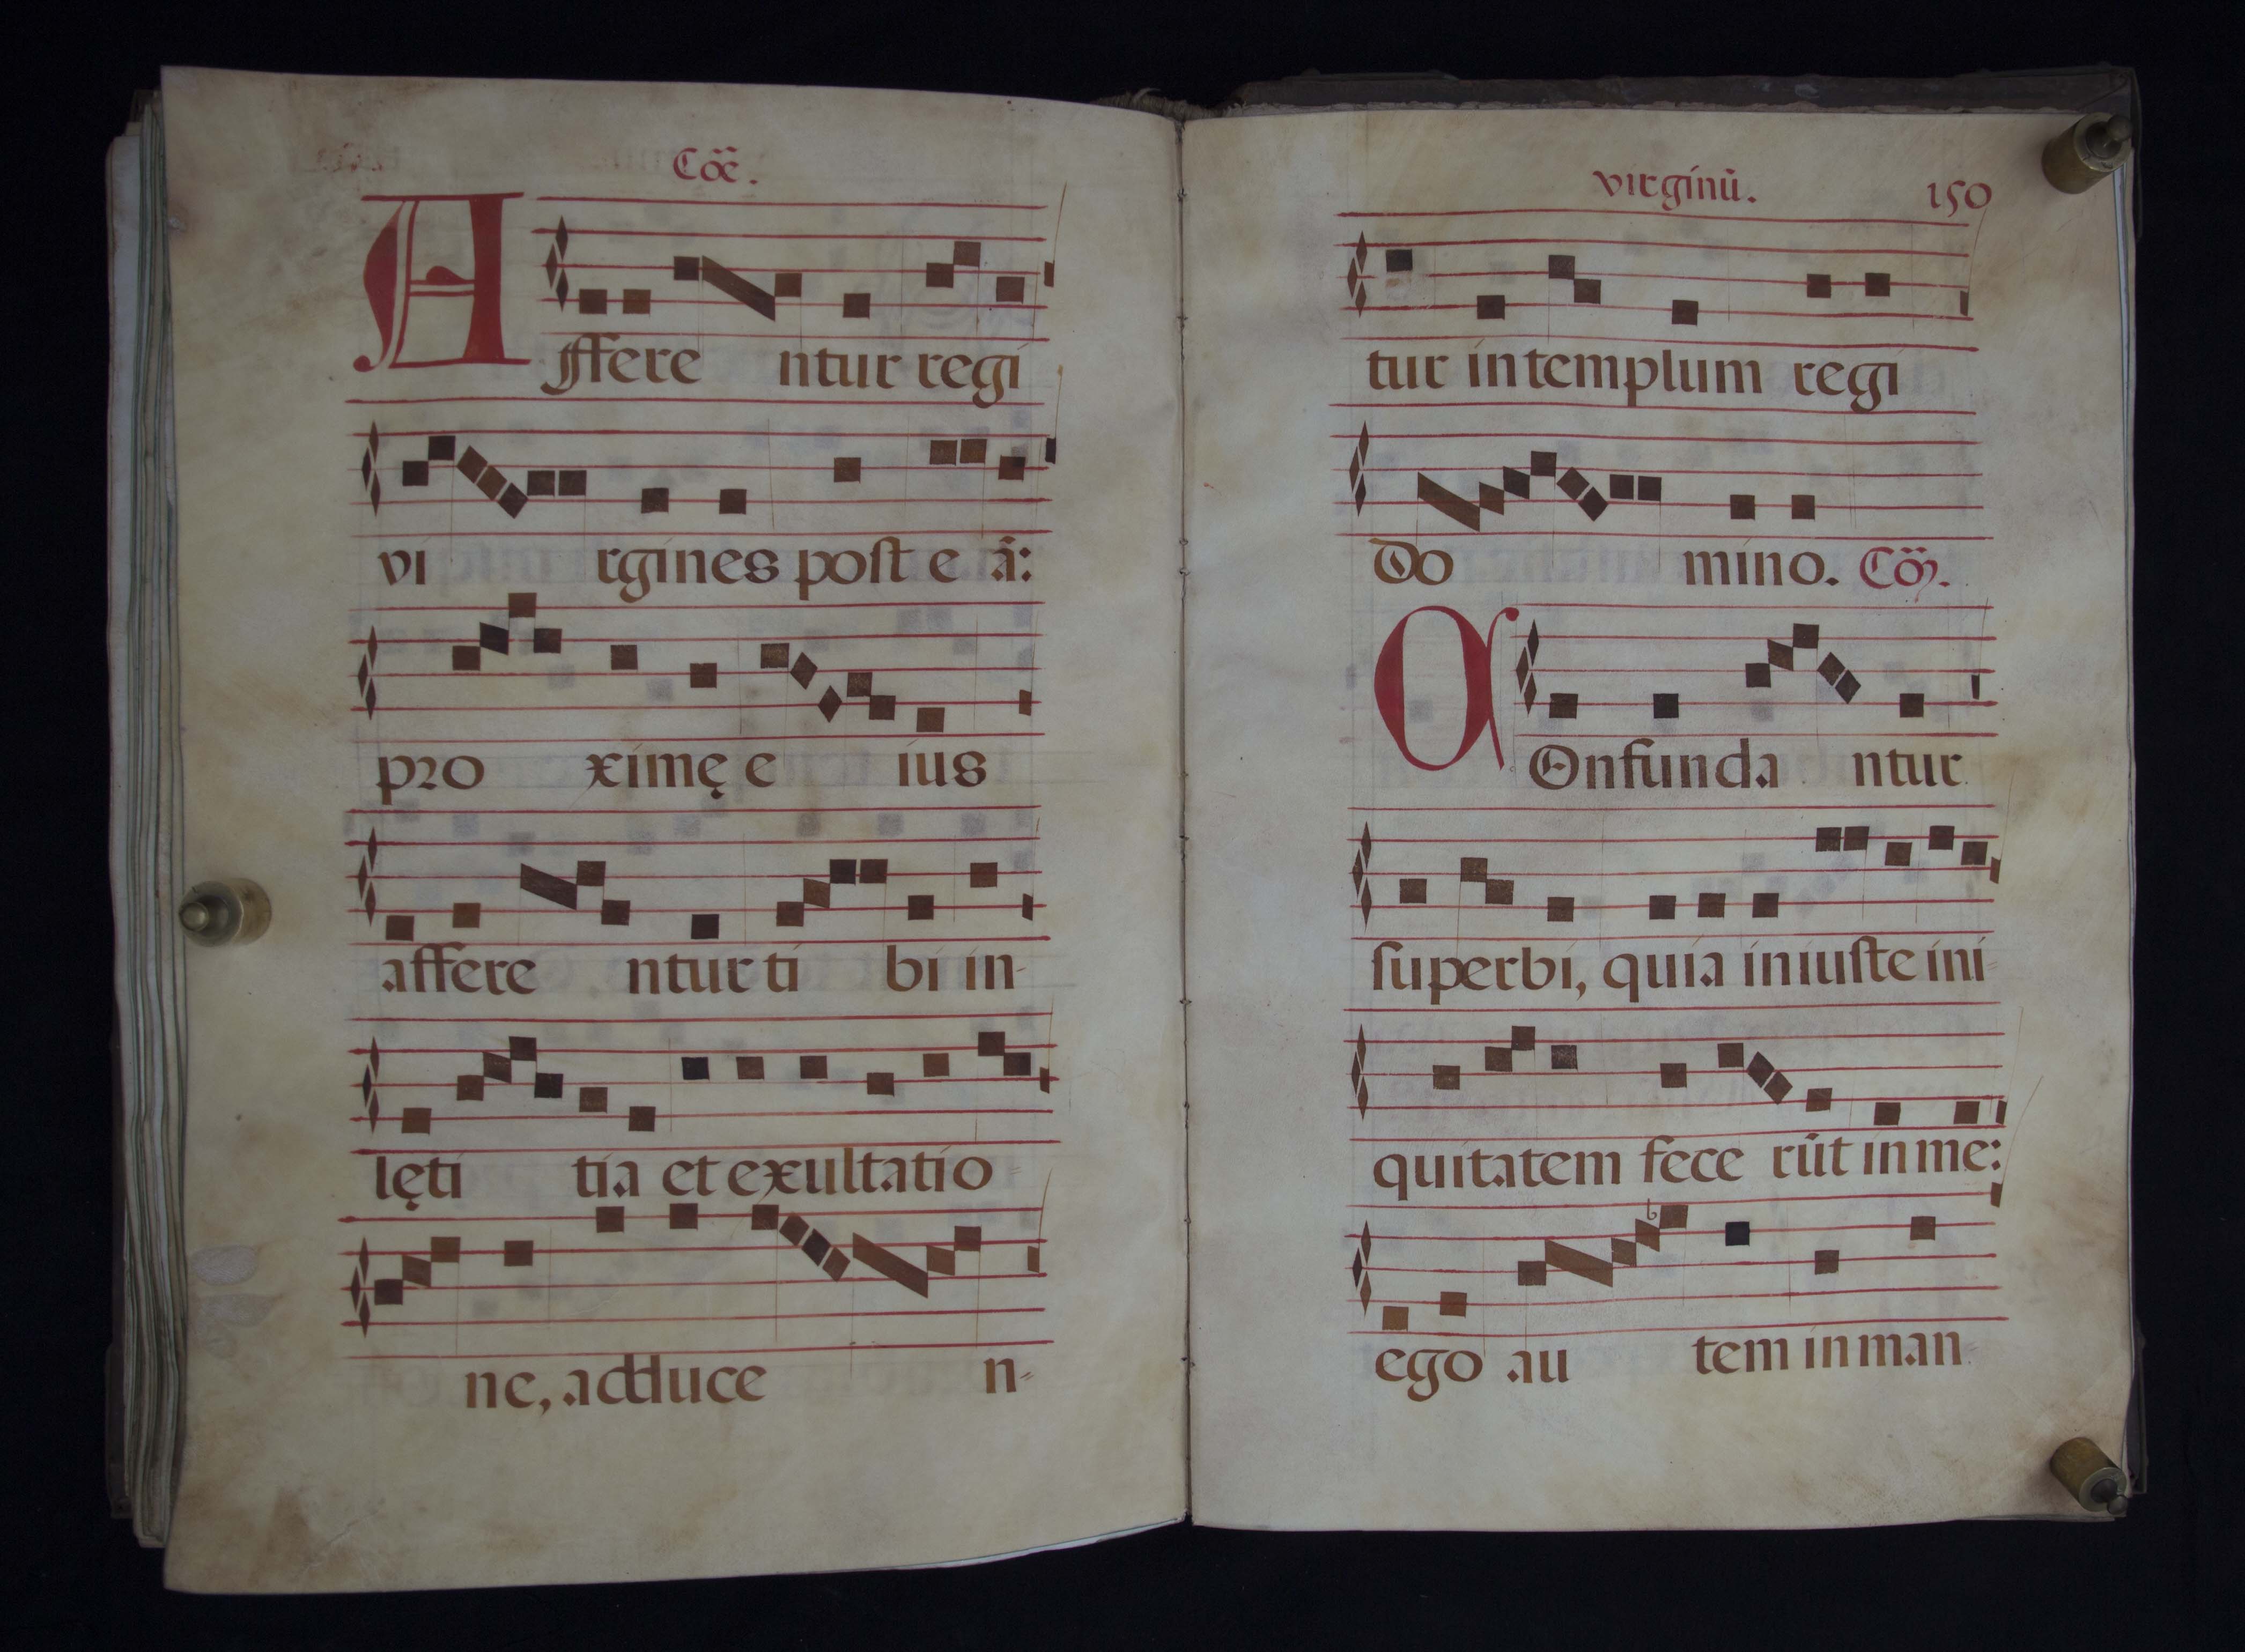 Cōē.
Affere ntur regi
vi rgines post e ā:
pro ximę e ius
affere ntur ti bi in-
lęti tia et exultatio-
ne, adduce n-
virginū. 150
tur in templum regi
Do mino. Cōȝ.
COnfunda ntur
superbi, quia iniuste ini-
quitatem fece rūt in me:
ego au tem in man